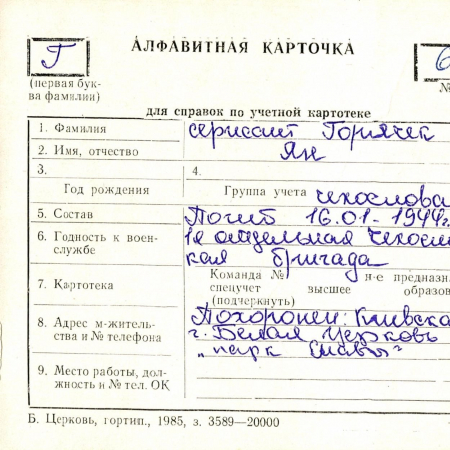 Г
АЛФАВИТНАЯ КАРТОЧКА
6
(первая бук-
ва фамилии)
№
для справок по учетной картотеке
1. Фамилия сержант Горячек
2. Имя, отчество Ян
3. 4.
Год рождения Группа учета чехослова
5. Состав Погиб 16.01-1944г.
6. Годность к воен- 1я отдельная чехосл
службе кая бригада
Команда № н-е предназн
7. Картотека спецучет высшее образов
(подчеркнуть)
8. Адрес м-житель- Похоронен: Киевска
ства и № телефона г. Белая Церковь
„парк Славы"
9. Место работы, дол-
жность и № тел. ОК
Б. Церковь, гортип., 1985, з. 3589—20000